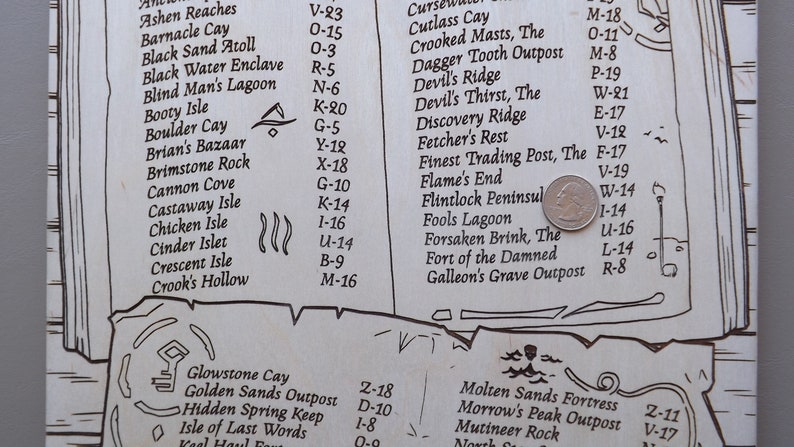 Ashen Reaches V-23
Barnacle Cay O-15
Black Sand Atoll O-3
Black Water Enclave R-5
Blind Man's Lagoon N-6
Booty Isle K-20
Boulder Cay G-5
Brian's Bazaar Y-12
Brimstone Rock X-18
Cannon Cove G-10
Castaway Isle K-14
Chicken Isle I-16
Cinder Islet U-14
Crescent Isle B-9
Crook's Hollow M-16
Cursewater
Cutlass Cay M-18
Crooked Masts, The O-11
Dagger Tooth Outpost M-8
Devil's Ridge P-19
Devil's Thirst, The W-21
Discovery Ridge E-17
Fetcher's Rest V-12
Finest Trading Post, The F-17
Flame's End V-19
Flintlock Peninsul W-14
Fools Lagoon I-14
Forsaken Brink, The U-16
Fort of the Damned L-14
Galleon's Grave Outpost R-8
Glowstone Cay Z-18
Golden Sands Outpost D-10
Hidden Spring Keep I-8
Isle of Last Words O-9
Keel Haul Fort
Molten Sands Fortress Z-11
Morrow's Peak Outpost V-17
Mutineer Rock
North